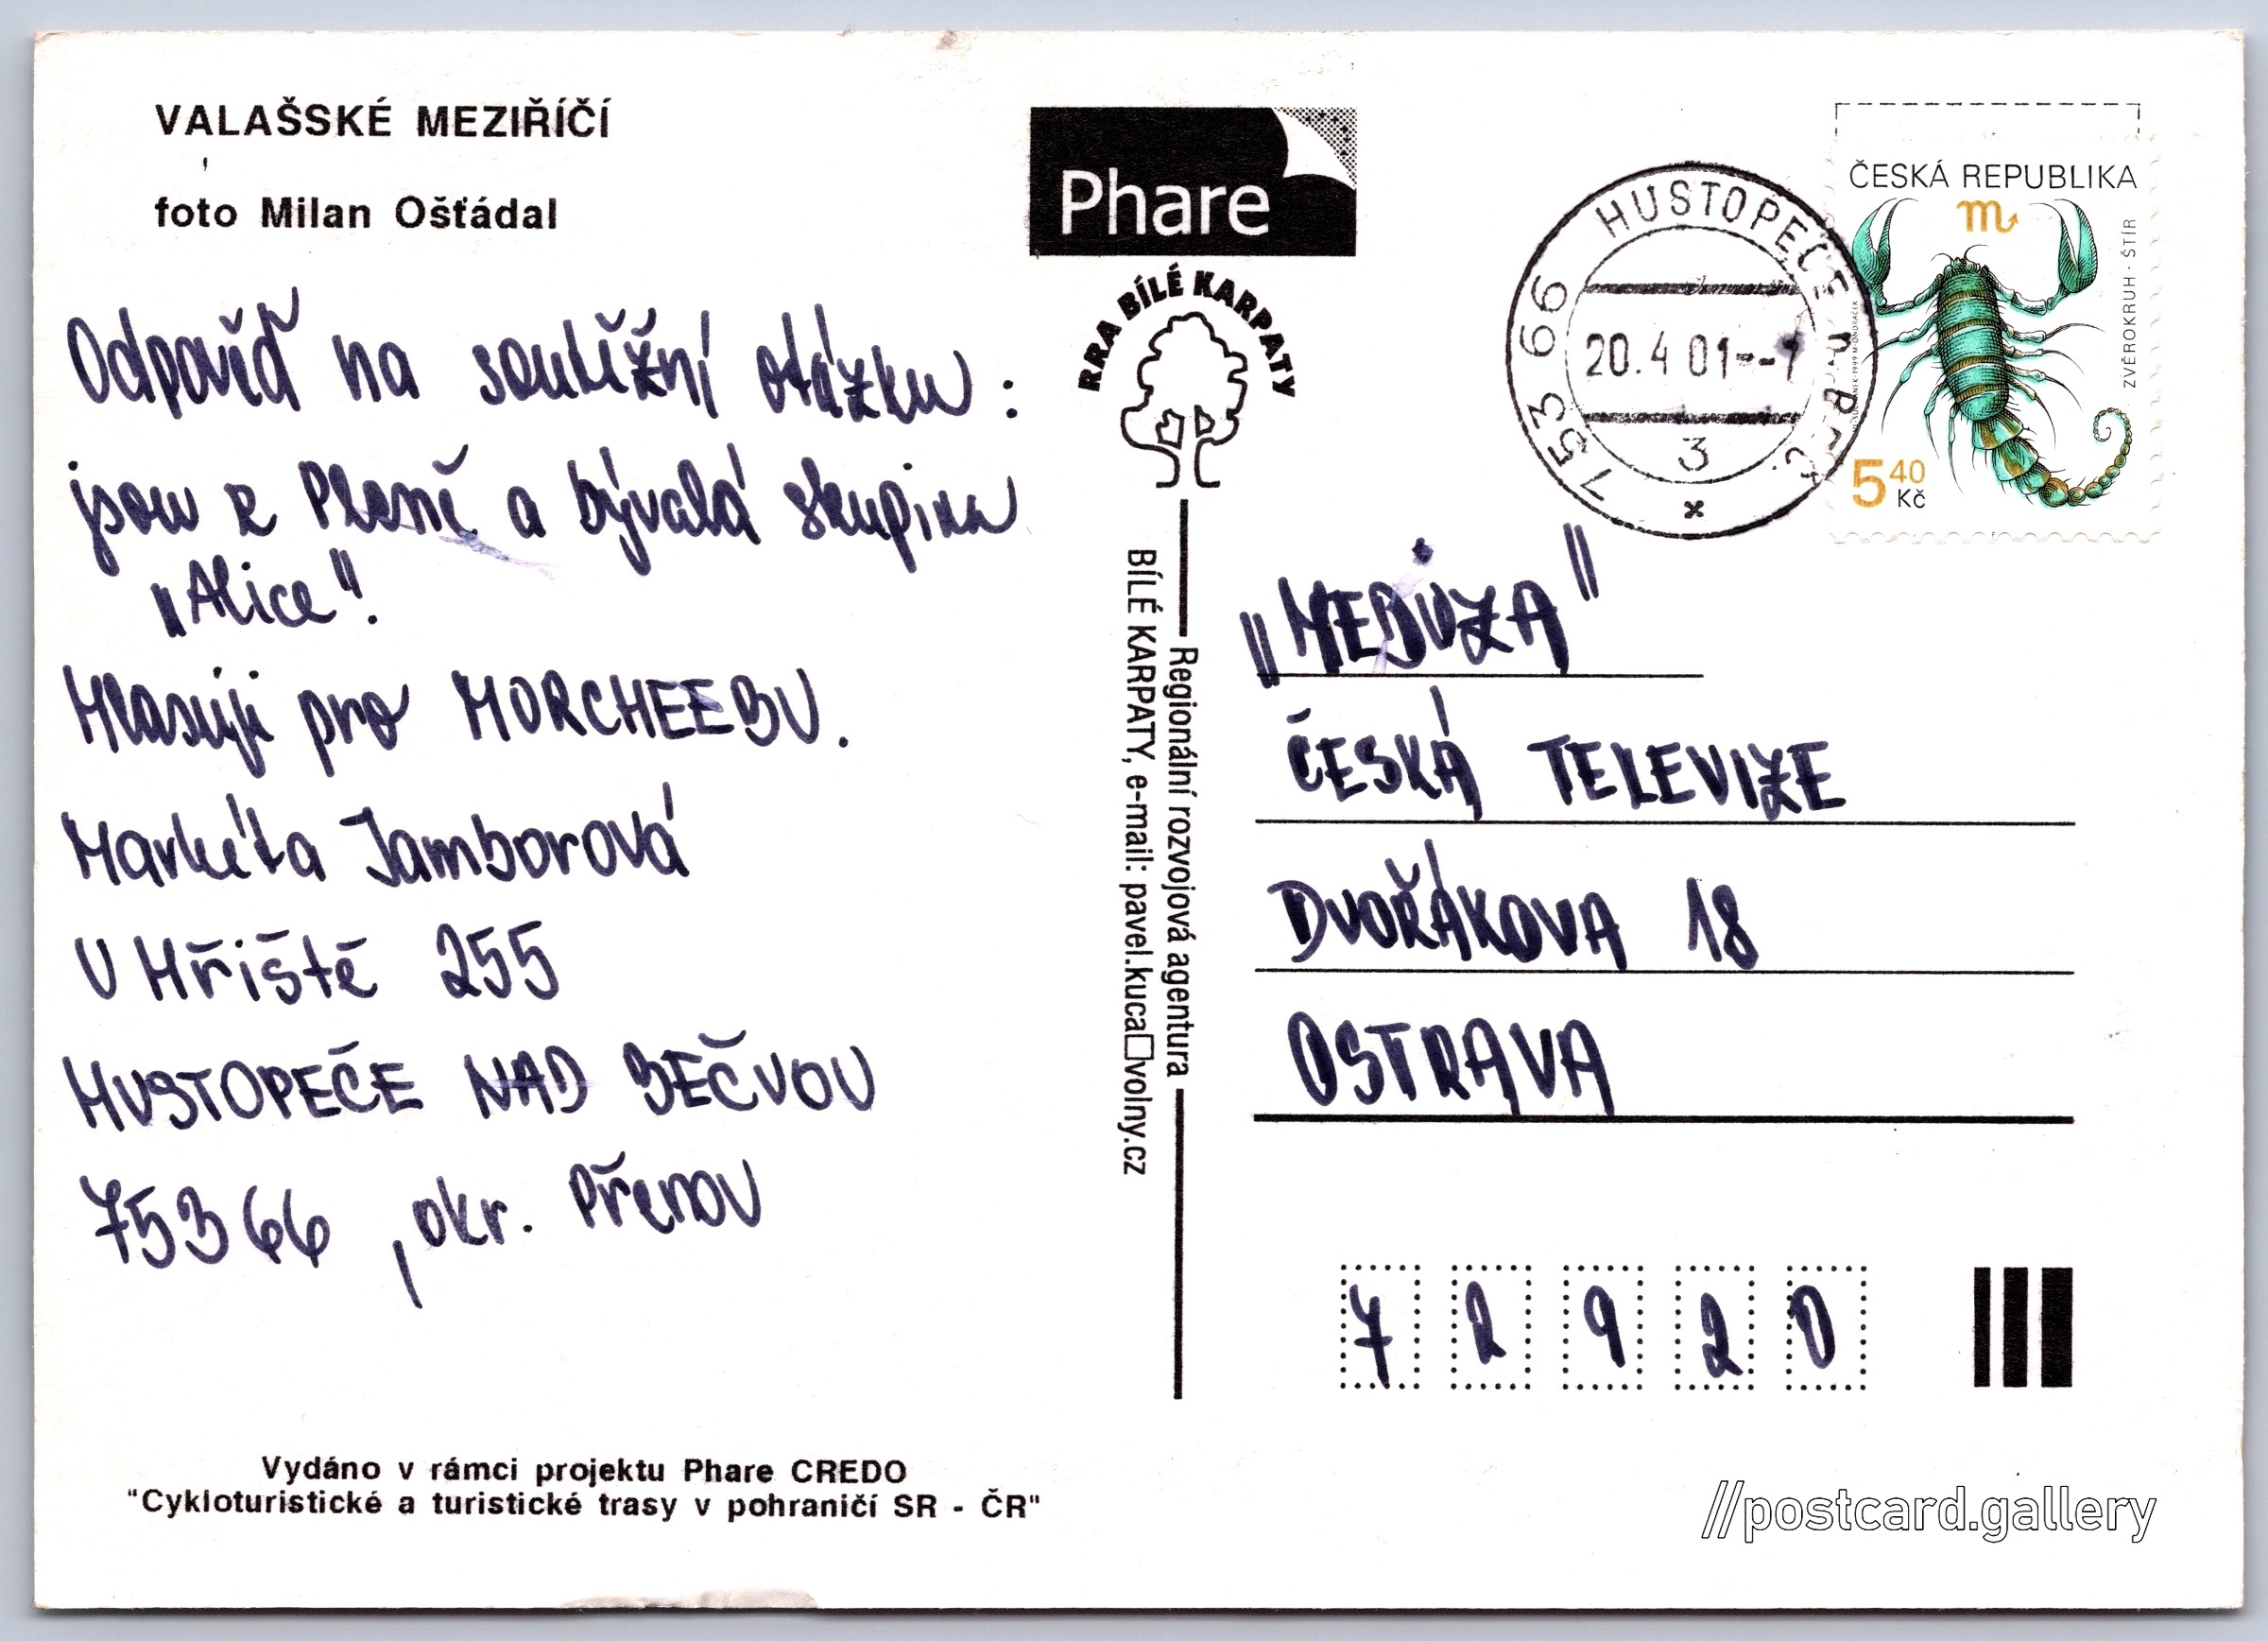 VALAŠSKÉ MEZIŘÍČÍ
foto Milan Ošťádal
Odpověď na soutěžní otázku:
jsou z Plzně a bývalá skupina
„Alice".
Hlasuji pro MORCHEEBU.
Markéta Jamborová
U Hřiště 255
HUSTOPEČE NAD BEČVOU
75366, okr. Přerov
Vydáno v rámci projektu Phare CREDO
"Cykloturistické a turistické trasy v pohraničí SR - ČR"
Phare
RRA BÍLÉ KARPATY
Regionální rozvojová agentura
BÍLÉ KARPATY, e-mail: pavel.kuca□volny.cz
753 66 HUSTOPEČE N. BEČ.
20.4.01--1
3
ČESKÁ REPUBLIKA
ZVĚROKRUH · ŠTÍR
5 40 Kč
„MEDÚZA"
ČESKÁ TELEVIZE
DVOŘÁKOVA 18
OSTRAVA
7 2 9 2 0
//postcard.gallery